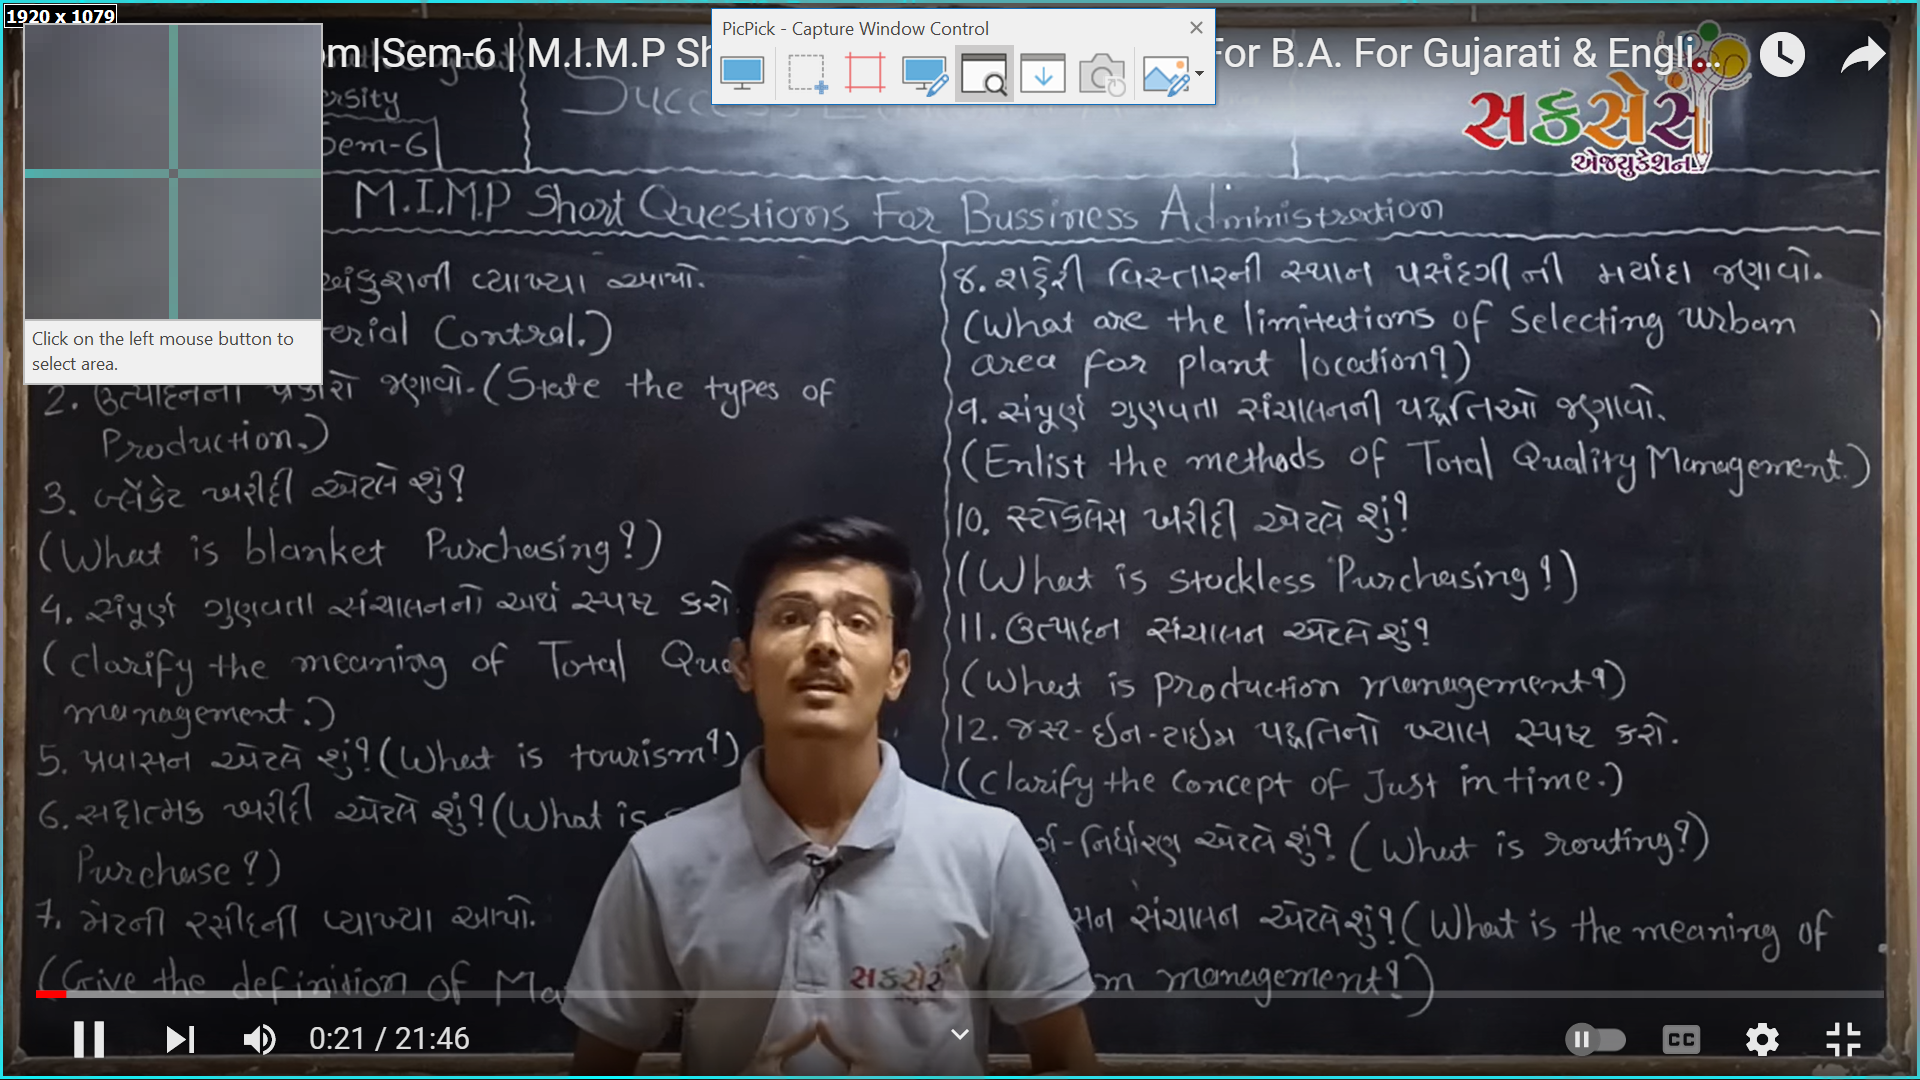 1920 x 1079
PicPick - Capture Window Control
om |Sem-6 | M.I.M.P Sh
For B.A. For Gujarati & Engli...
સકસેસ
એજ્યુકેશન
ersity
Sem-6
Click on the left mouse button to
select area.
M.I.M.P Short Questions For Bussiness Administration
અંકુશની વ્યાખ્યા આપો.
erial Control.)
2. ઉત્પાદનના પ્રકારો જણાવો. (State the types of
Production.)
3. બ્લેંકેટ ખરીદી એટલે શું?
(What is blanket Purchasing?)
4. સંપૂર્ણ ગુણવત્તા સંચાલનનો અર્થ સ્પષ્ટ કરો
(Clarify the meaning of Total Qua
management.)
5. પ્રવાસન એટલે શું? (What is tourism?)
6. સટ્ટાત્મક ખરીદી એટલે શું? (What is
Purchase?)
7. મેટની રસીદની વ્યાખ્યા આપો.
(Give the definition of Ma
8. શહેરી વિસ્તારની સ્થાન પસંદગી ની મર્યાદા જણાવો.
(What are the limitations of Selecting Urban
area for plant location?)
9. સંપૂર્ણ ગુણવત્તા સંચાલનની પદ્ધતિઓ જણાવો.
(Enlist the methods of Total Quality Management.)
10. સ્ટોકલેસ ખરીદી એટલે શું?
(What is stockless Purchasing?)
11. ઉત્પાદન સંચાલન એટલે શું?
(What is production management?)
12. જસ્ટ-ઈન-ટાઈમ પદ્ધતિનો ખ્યાલ સ્પષ્ટ કરો.
(Clarify the Concept of Just in time.)
ર્ગ-નિર્ધારણ એટલે શું? (What is routing?)
સન સંચાલન એટલે શું? (What is the meaning of
m management?)
સકસેસ
0:21 / 21:46
CC